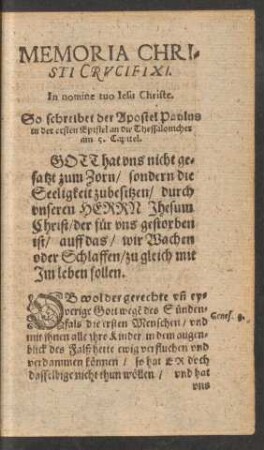 MEMORIA CHRI-
STI CRVCIFIXI.
In nomine tuo Iesu Christe.
So schreibet der Apostel Paulus
in der ersten Epistel an die Thessalonicher
am 5. Capitel.
GOTT hat vns nicht ge-
satzt zum Zorn/ sondern die
Seeligkeit zubesitzen/ durch
vnseren HERRN Jhesum
Christ/ der für vns gestorben
ist/ auff das/ wir Wachen
oder Schlaffen/ zu gleich mit
Jm leben sollen.
OB wol der gerechte vñ ey-
verige Gott wegē des Sünden-
fals die ersten Menschen/ vnd
mit jhnen alle jhre Kinder in dem augen-
blick des Falß hette ewig verfluchen vnd
verdammen können/ so hat ER doch
dasselbige nicht thun wöllen/ vnd hat
vns
Genes. 3.